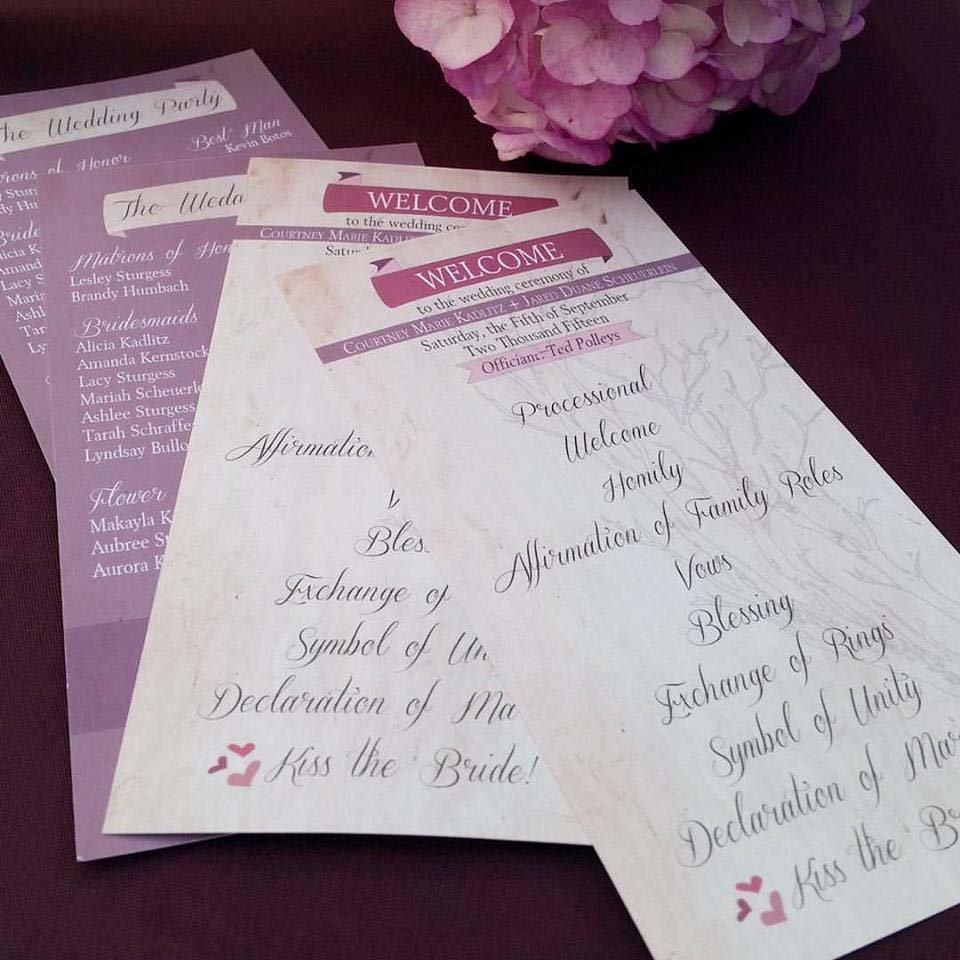 he Wedding Party
Best Man
Kevin Botos
rons of Honor
y Stur
dy Hu
Bride
licia K
Amand
Lacy S
Maria
Ashl
Tar
Ly
The Wedd
Matrons of Hon
Lesley Sturgess
Brandy Humbach
Bridesmaids
Alicia Kadlitz
Amanda Kernstock
Lacy Sturgess
Mariah Scheuerle
Ashlee Sturgess
Tarah Schraffe
Lyndsay Bullo
Flower
Makayla K
Aubree St
Aurora K
WELCOME
to the wedding ce
Courtney Marie Kadli
Satur
Affirmation
V
Bles
Exchange of
Symbol of Un
Declaration of Ma
Kiss the Bride!
WELCOME
to the wedding ceremony of
Courtney Marie Kadlitz + Jared Duane Scheuerlein
Saturday, the Fifth of September
Two Thousand Fifteen
Officiant-Ted Polleys
Processional
Welcome
Homily
Affirmation of Family Roles
Vows
Blessing
Exchange of Rings
Symbol of Unity
Declaration of Mar
Kiss the B